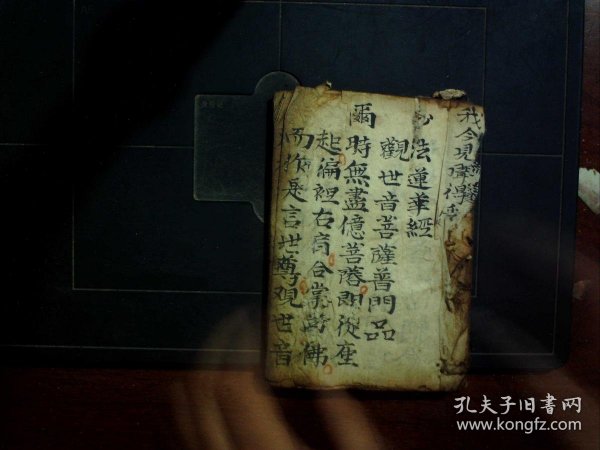 我今
妙法蓮華經
觀世音菩薩普門品
爾時無盡億菩薩即從座
起偏袒右肩合掌向佛
而作是言世尊觀世音
孔夫子旧书网
www.kongfz.com